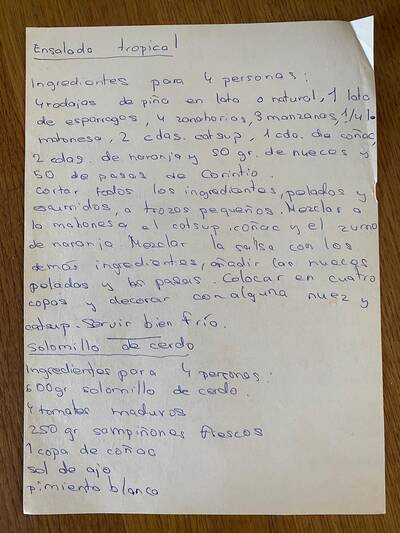 Ensalada tropical
Ingredientes para 4 personas:
4 rodajas de piña en lata o natural, 1 lata
de esparragos, 4 zanahorias, 3 manzanas, 1/4 l
mahonesa, 2 cdas. catsup, 1 cda. de coñac,
2 cdas. de naranja y 50 gr. de nueces y
50 de pasas de Corintio.
cortar todos los ingredientes, pelados y
escurridos, a trozos pequeños. Mezclar a
la mahonesa el catsup. coñac y el zumo
de naranja Mezclar la salsa con los
demás ingredientes, añadir las nueces
peladas y las pasas. Colocar en cuatro
copas y decorar con alguna nuez y
catsup. Servir bien frío.
Solomillo de cerdo
Ingredientes para 4 personas:
600gr solomillo de cerdo.
4 tomates maduros
250 gr sampiñones frescos
1 copa de coñac
sal de ajo
pimiento blanco